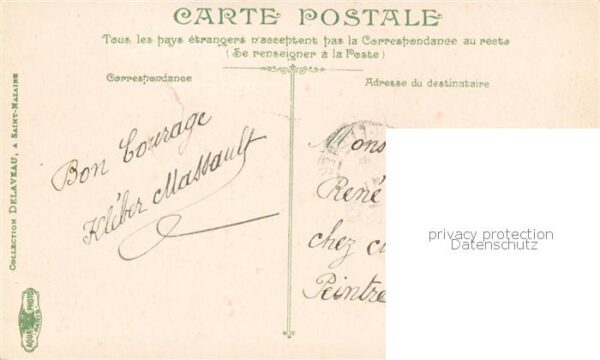 CARTE POSTALE
Tous les pays étrangers n'acceptent pas la Correspondance au recto
(Se renseigner à la Poste)
Correspondance
Adresse du destinataire
COLLECTION DELAVEAU, A SAINT-NAZAIRE
Bon Courage
Kléber Massault
Mons
René
chez
Peintre
privacy protection
Datenschutz